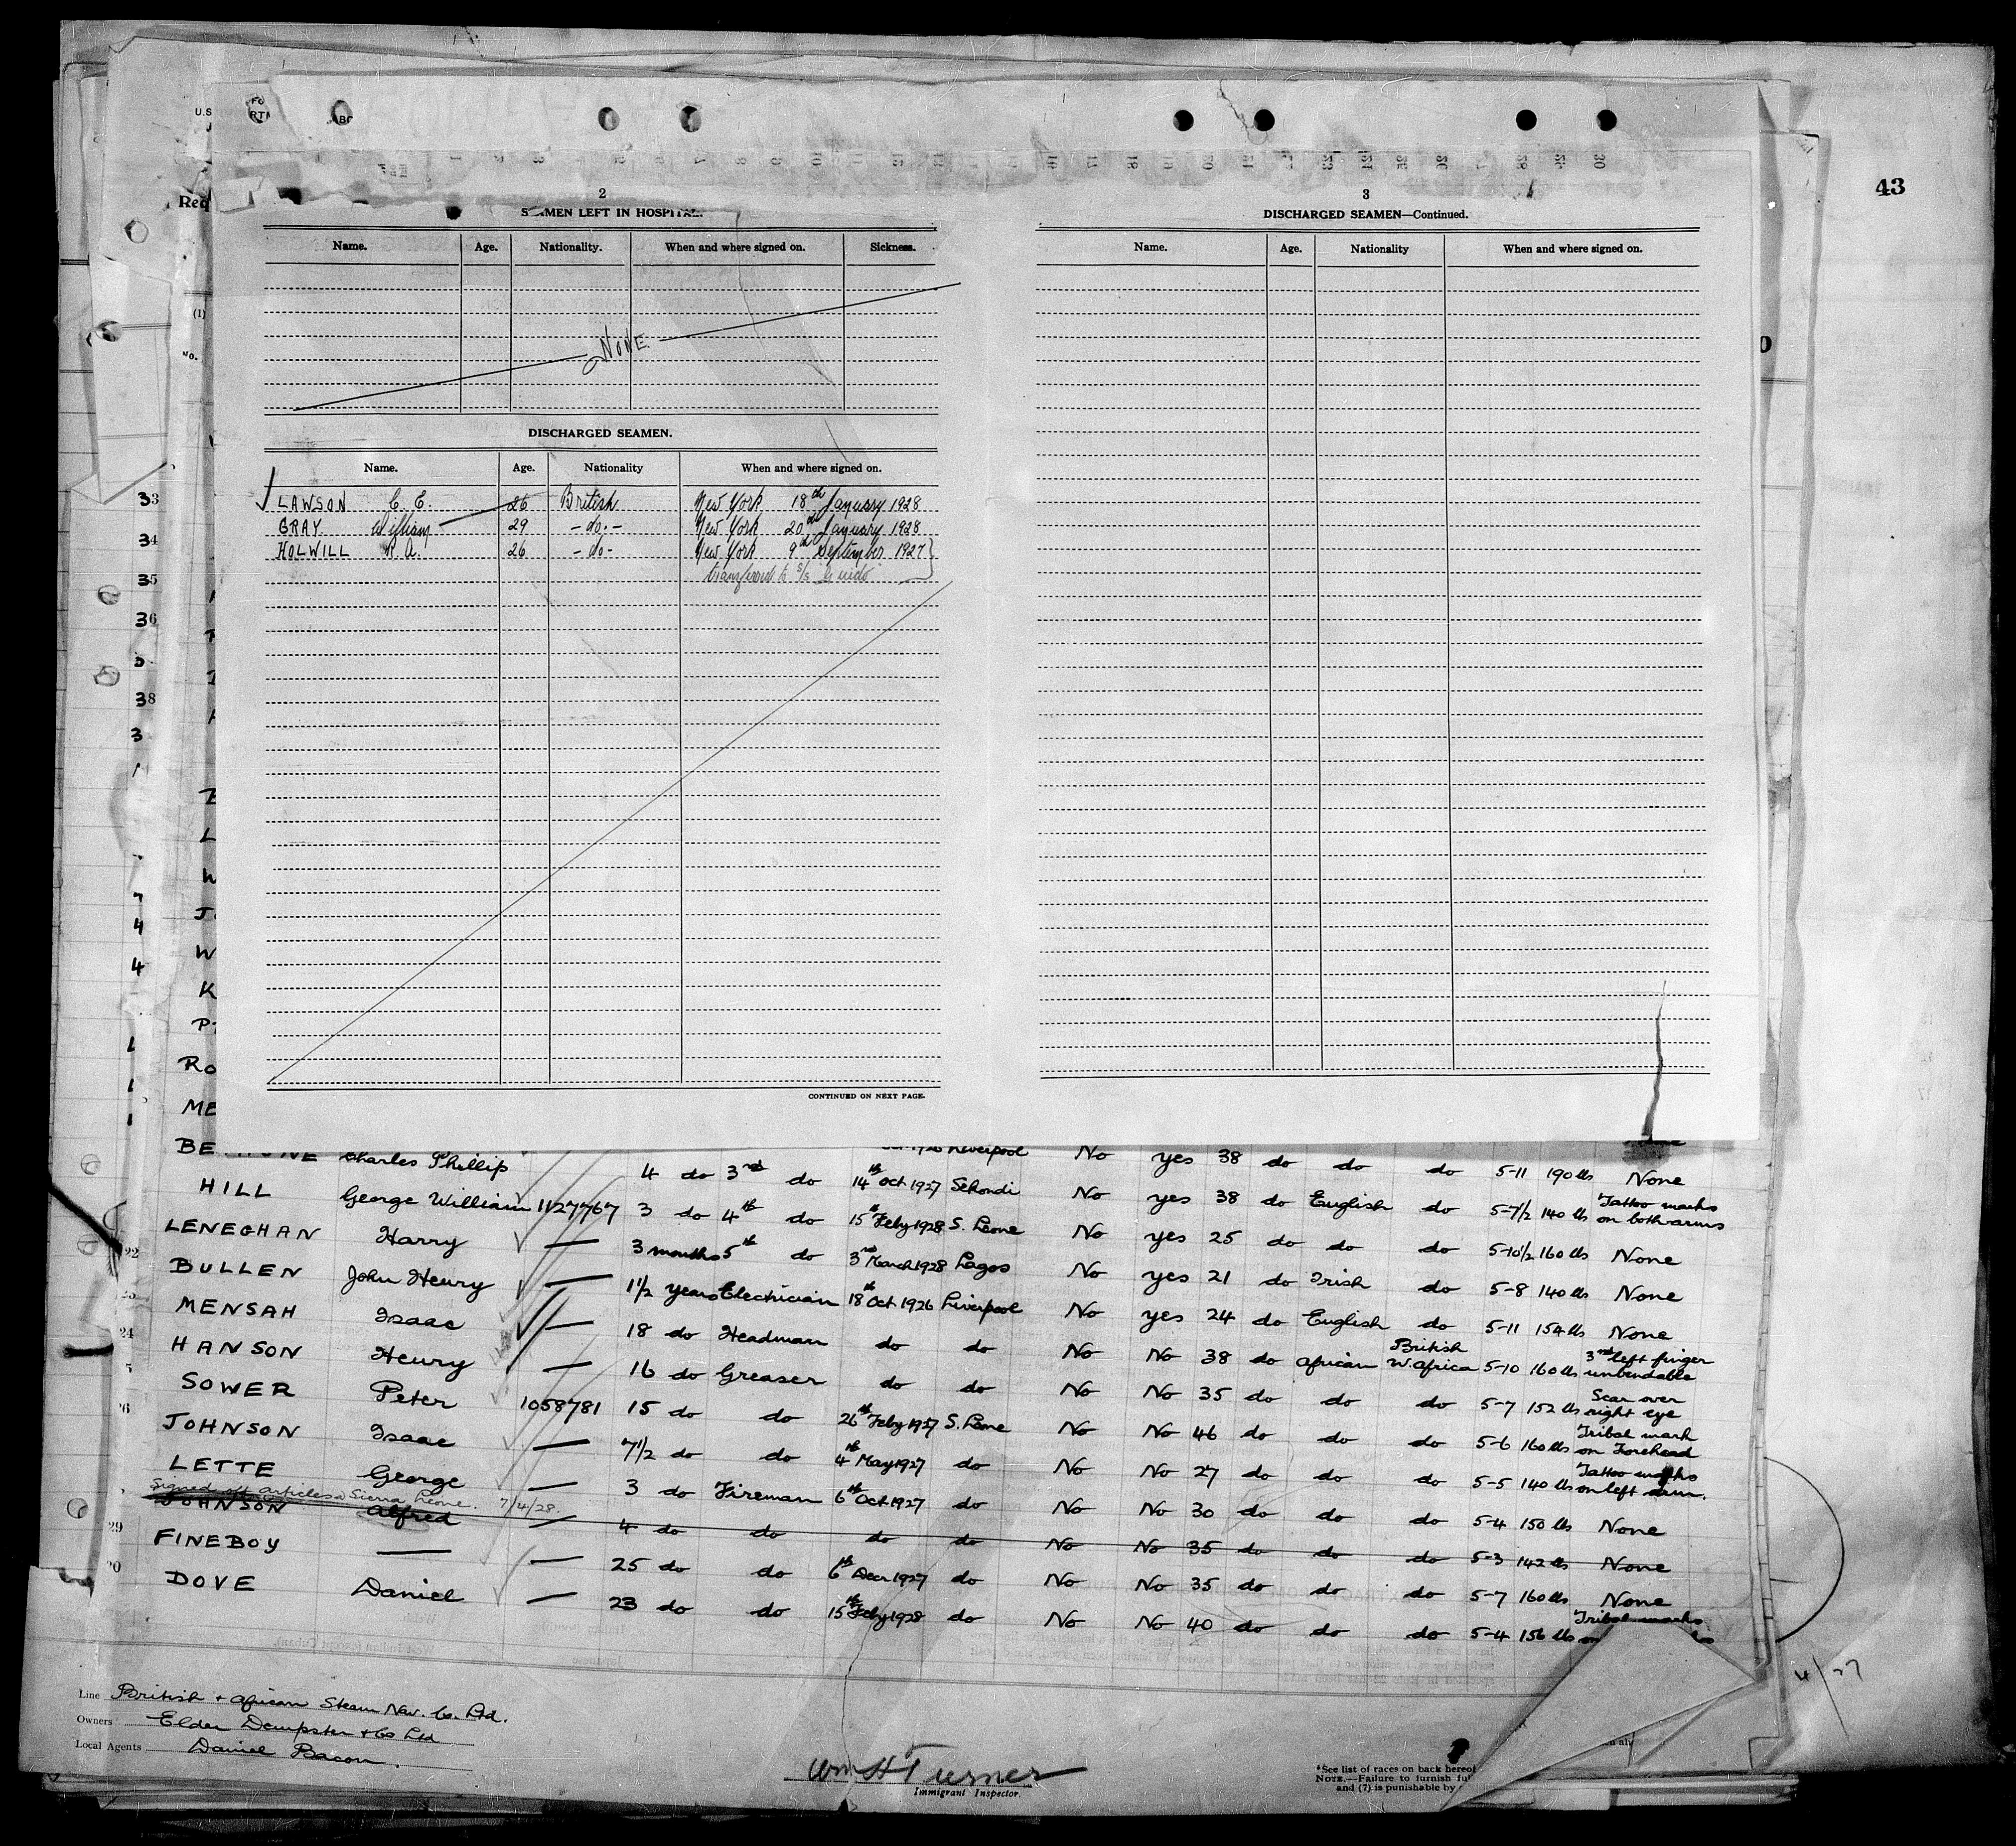 43
2
SEAMEN LEFT IN HOSPITAL.
Name. Age. Nationality. When and where signed on. Sickness.
NONE
DISCHARGED SEAMEN.
Name. Age. Nationality When and where signed on.
LAWSON C. E. 26 British New York 18th January 1928
GRAY William 29 -do.- New York 20th January 1928
HOLWILL R. A. 26 -do- New York 9th September 1927
transferred to S/S
CONTINUED ON NEXT PAGE.
3
DISCHARGED SEAMEN—Continued.
Name. Age. Nationality When and where signed on.
U.S
Req
(1)
No.
33
34
35
36
38
RO
ME
BE Charles Phillip 4 do 3rd do Liverpool No yes 38 do do do 5-11 190 lbs None
HILL George William 1127767 3 do 4th do 14th Oct 1927 Sekondi No yes 38 do English do 5-7½ 140 lbs Tattoo marks on both arms
LENEGHAN Harry — 3 months 5th do 15th Feby 1928 S. Leone No yes 25 do do do 5-10½ 160 lbs None
BULLEN John Henry — 1½ years Electrician 3rd March 1928 Lagos No yes 21 do Irish do 5-8 140 lbs None
MENSAH Isaac — 18 do Headman 18th Oct 1926 Liverpool No yes 24 do English do 5-11 154 lbs None
HANSON Henry — 16 do Greaser do do No No 38 do African British W. Africa 5-10 160 lbs 3rd left finger unbendable
SOWER Peter 1058781 15 do do do do No No 35 do do do 5-7 152 lbs Scar over right eye
JOHNSON Isaac — 7½ do do 26th Feby 1927 S. Leone No No 46 do do do 5-6 160 lbs Tribal mark on Forehead
LETTE George — 3 do Fireman 4th May 1927 do No No 27 do do do 5-5 140 lbs Tattoo marks on left arm.
Signed off articles Sierra Leone. 7/4/28.
JOHNSON Alfred — 4 do do 6th Oct 1927 do No No 30 do do do 5-4 150 lbs None
FINEBOY — — 25 do do do do No No 35 do do do 5-3 142 lbs None
DOVE Daniel — 23 do do 6th Decr 1927 do No No 35 do do do 5-7 160 lbs None
15th Feby 1928 do No No 40 do do do 5-4 156 lbs Tribal marks
Line British & African Steam Nav. Co. Ltd.
Owners Elder Dempster & Co Ltd
Local Agents Daniel Bacon.
Wm H Turner
Immigrant Inspector.
*See list of races on back hereof
NOTE.—Failure to furnish
and (7) is punishable by